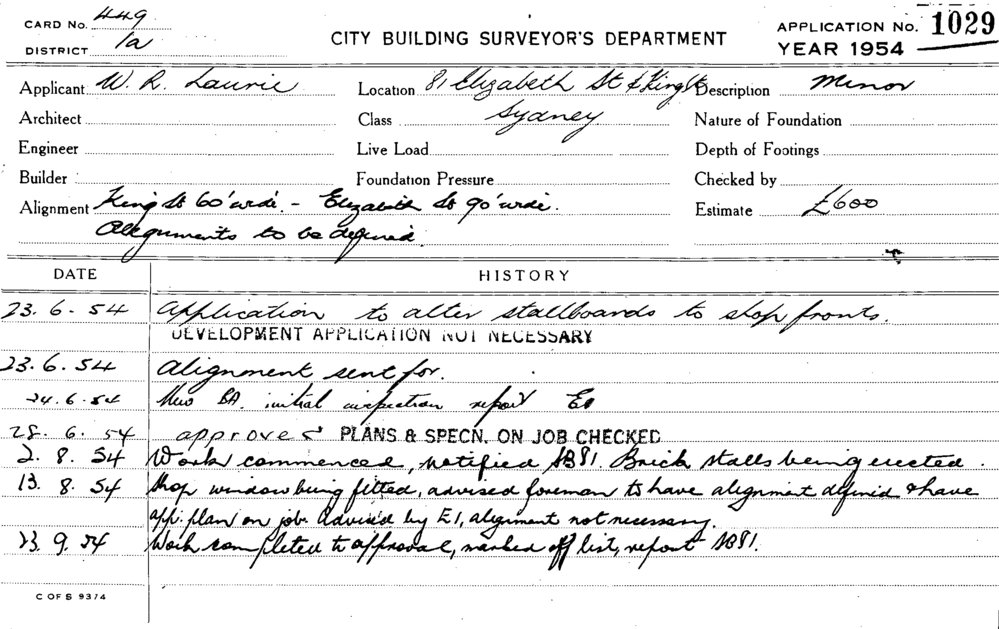 CARD NO. 449
DISTRICT 1a
CITY BUILDING SURVEYOR'S DEPARTMENT
APPLICATION NO. 1029
YEAR 1954
Applicant W. R. Laurie
Location 81 Elizabeth St & King St
Description Minor
Architect
Class Sydney
Nature of Foundation
Engineer
Live Load
Depth of Footings
Builder
Foundation Pressure
Checked by
Alignment King St 60' wide. - Elizabeth St 90' wide.
Estimate £600
Alignments to be defined.
DATE HISTORY
23. 6. 54 Application to alter stallboards to shop fronts.
DEVELOPMENT APPLICATION NOT NECESSARY
23. 6. 54 Alignment sent for.
24. 6. 54 New BA. initial inspection report E1
28. 6. 54 approved PLANS & SPECN. ON JOB CHECKED
2. 8. 54 Work commenced, notified SB81. Brick stalls being erected.
13. 8. 54 Shop window being fitted, advised foreman to have alignment defined & have
app. plan on job. Advised by E1, alignment not necessary.
23. 9. 54 Work completed to approval, marked off list, report SB81.
C OF S 9374